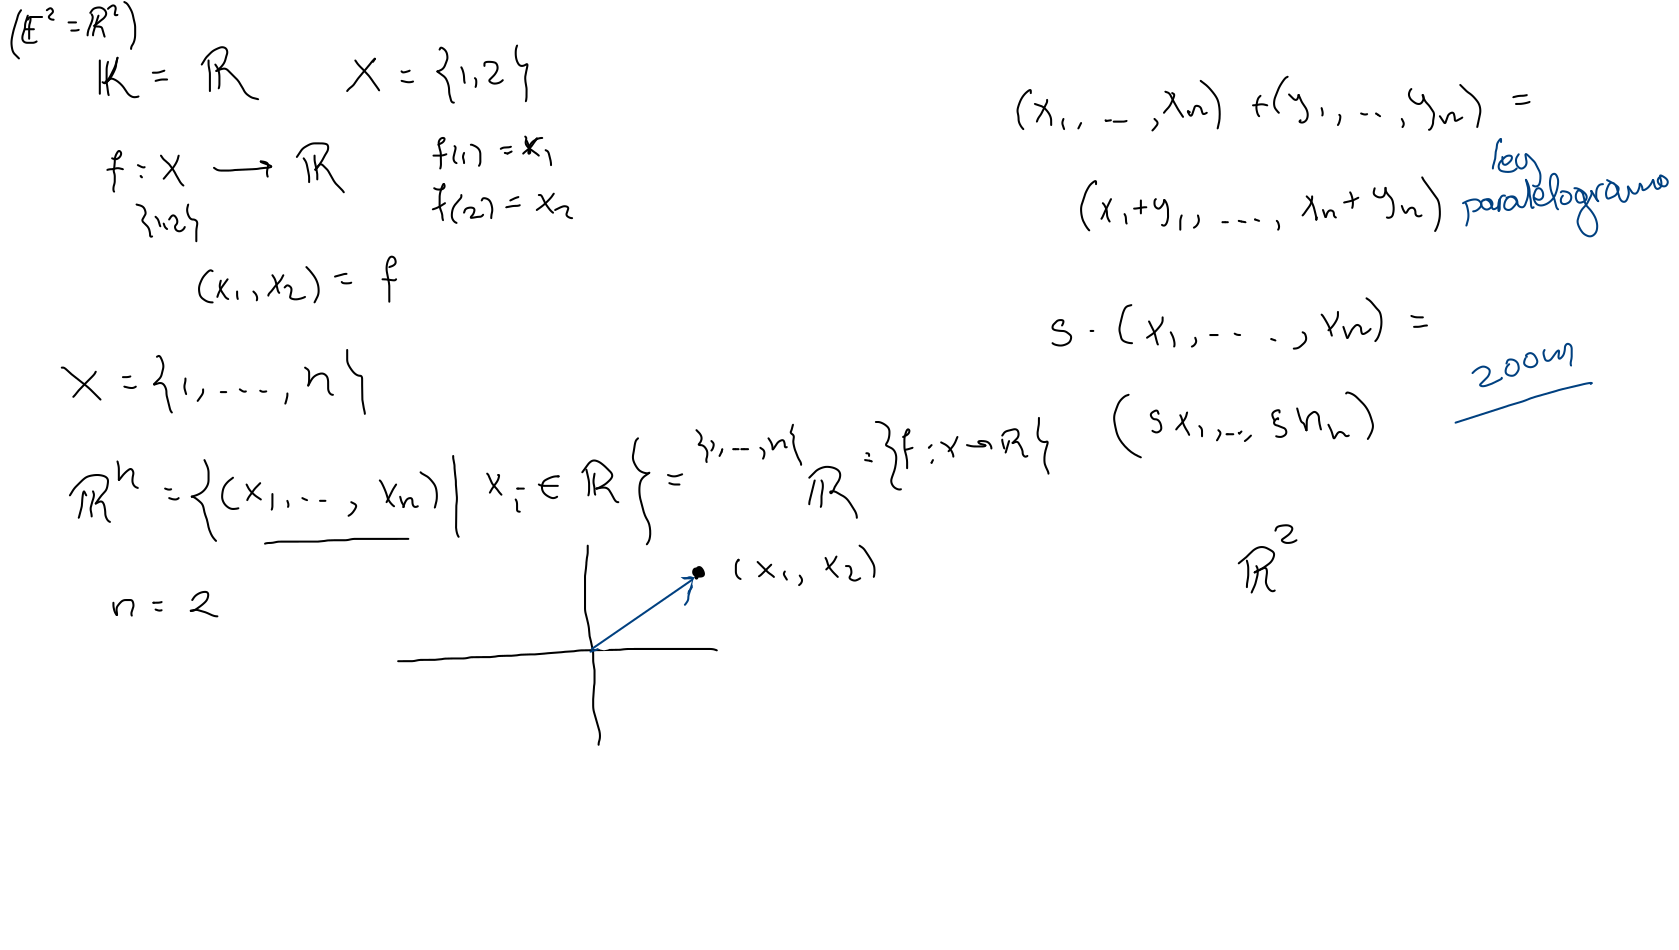 (E² = ℝ²)
𝕂 = ℝ X = {1,2}
f : X ⟶ ℝ f(1) = x₁
{1,2} f(2) = x₂
(x₁, x₂) = f
X = {1, ..., n}
ℝⁿ = {(x₁, ..., xₙ) | xᵢ ∈ ℝ} = {1, ..., n} ℝ = {f : X → ℝ}
n = 2
(x₁, x₂)
(x₁, ..., xₙ) + (y₁, ..., yₙ) =
(x₁+y₁, ..., xₙ+yₙ)
ley
paralelogramo
s · (x₁, ..., xₙ) =
(s x₁, ..., s nₙ)
zoom
ℝ²